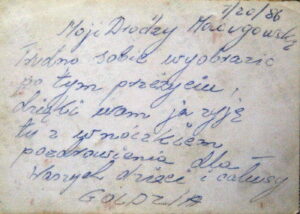 7/20/86
Moji Drodzy Macugowscy
Trudno sobie wyobrazić
po tym przeżyciu,
dzięki wam ja żyję
tu z wnuczkiem
pozdrowienia dla
Waszych dzieci i całusy
GOLDZIA